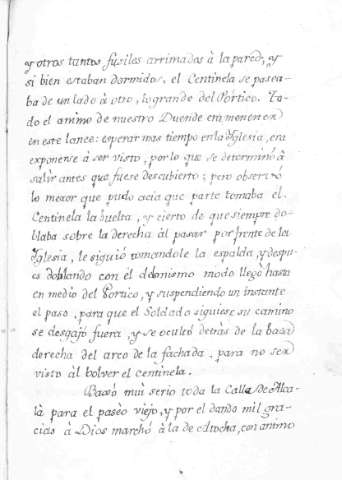 y otros tantos fusiles arrimados à la pared, y
si bien estaban dormidos, el Centinela se pasea-
ba de un lado à otro, lo grande del Pórtico. To-
do el animo de nuestro Duende era menester
en este lance: esperar mas tiempo en la Yglesia, era
exponerse à ser visto, por lo que se determinó à
salir antes que fuese descubierto; pero observó
lo mexor que pudo acia que parte tomaba el
Centinela la buelta, y cierto de que siempre do-
blaba sobre la derecha al pasar por frente de la
Yglesia, le siguió tomandole la espalda, y despu-
es doblando con él del mismo modo llegó hasta
en medio del Portico, y suspendiendo un instante
el paso, para que el Soldado siguiese su camino
se desgajó fuera, y se ocultó detrás de la basa
derecha del arco de la fachada, para no ser
visto al bolver el centinela.
Pasó mui serio toda la Calle de Alca-
là para el paséo viejo, y por el dando mil gra-
cias à Dios marchó à la de Atocha, con animo